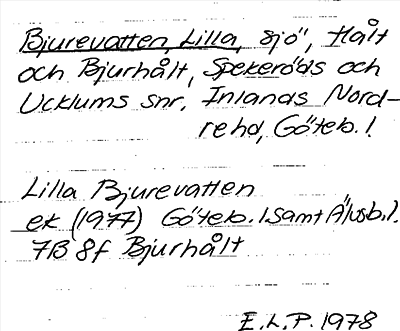 Bjurevatten, Lilla, sjö, Hålt
och Bjurhålt, Spekeröds och
Ucklums snr, Inlands Nord-
rehd, Göteb. l.
Lilla Bjurevatten
ek (1977) Göteb. l. samt Älvsb. l.
7B 8f Bjurhålt
E.L.P. 1978